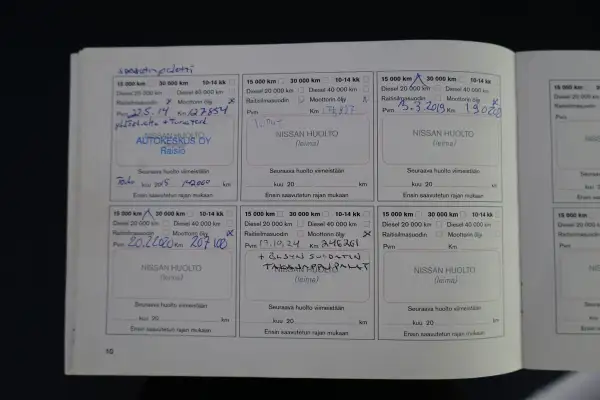 15 000 km 30 000 km 10-14 kk
Diesel 20 000 km Diesel 40 000 km
Raitisilmasuodin Moottorin öljy x
Pvm 22.5.14 Km 127854
NISSAN HUOLTO
AUTOKESKUS OY
Raisio
Seuraava huolto viimeistään
kuu 2015 142000 km
Ensin saavutetun rajan mukaan
15 000 km 30 000 km 10-14 kk
Diesel 20 000 km Diesel 40 000 km
Raitisilmasuodin Moottorin öljy x
Pvm Km
NISSAN HUOLTO
(leima)
Seuraava huolto viimeistään
kuu 20 km
Ensin saavutetun rajan mukaan
15 000 km 30 000 km 10-14 kk
Diesel 20 000 km Diesel 40 000 km
Raitisilmasuodin Moottorin öljy x
Pvm Km
NISSAN HUOLTO
(leima)
Seuraava huolto viimeistään
kuu 20 km
Ensin saavutetun rajan mukaan
15 000 km 30 000 km 10-14 kk
Diesel 20 000 km Diesel 40 000 km
Raitisilmasuodin Moottorin öljy x
Pvm Km 207100
NISSAN HUOLTO
(leima)
Seuraava huolto viimeistään
kuu 20 km
Ensin saavutetun rajan mukaan
15 000 km 30 000 km 10-14 kk
Diesel 20 000 km Diesel 40 000 km
Raitisilmasuodin Moottorin öljy x
Pvm 17.10.24 Km 246261
+ BENSAN SUODATIN
TAKAJARRUPALAT
NISSAN HUOLTO
(leima)
Seuraava huolto viimeistään
kuu 20 km
Ensin saavutetun rajan mukaan
15 000 km 30 000 km 10-14 kk
Diesel 20 000 km Diesel 40 000 km
Raitisilmasuodin Moottorin öljy
Pvm Km
NISSAN HUOLTO
(leima)
Seuraava huolto viimeistään
kuu 20 km
Ensin saavutetun rajan mukaan
10